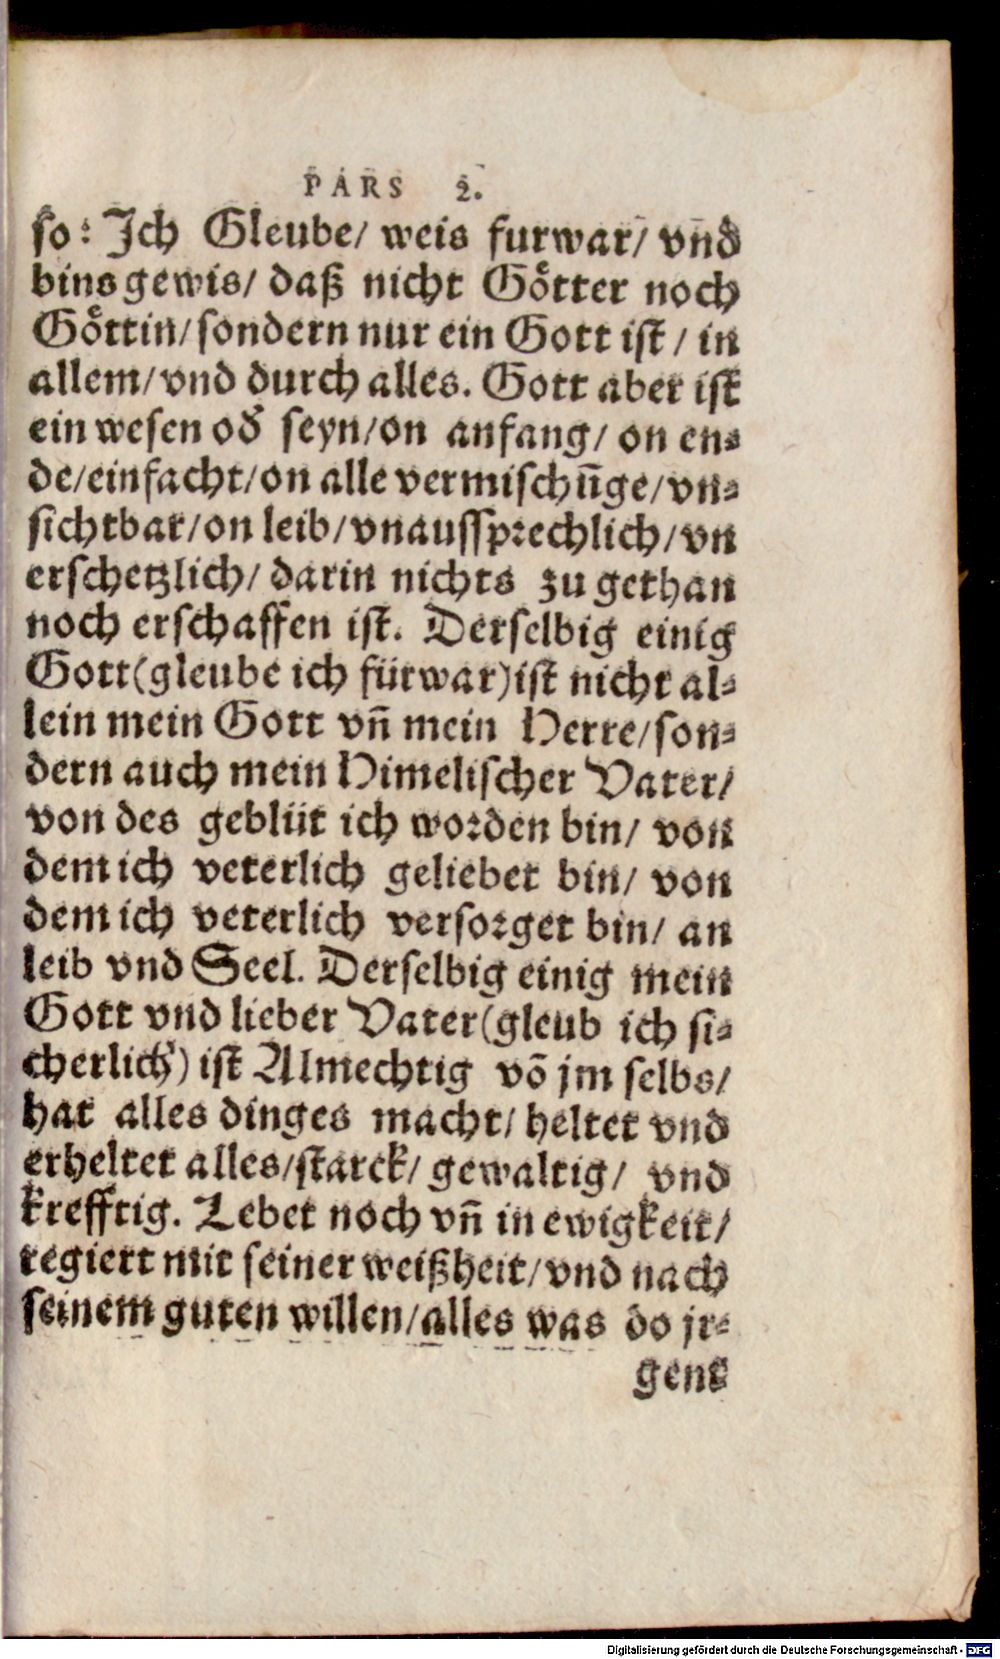 PARS 2.
so: Ich Gleube/ weis furwar/ vnd
bins gewis/ daß nicht Goͤtter noch
Goͤttin/ sondern nur ein Gott ist/ in
allem/ vnd durch alles. Gott aber ist
ein wesen od' seyn/ on anfang/ on en⸗
de/ einfacht/ on alle vermischūge/ vn⸗
sichtbar/ on leib/ vnaussprechlich/ vn
erschetzlich/ darin nichts zu gethan
noch erschaffen ist. Derselbig einig
Gott (gleube ich fürwar) ist nicht al⸗
lein mein Gott vñ mein Herre/ son⸗
dern auch mein Himelischer Vater/
von des geblüt ich worden bin/ von
dem ich veterlich geliebet bin/ von
dem ich veterlich versorget bin/ an
leib vnd Seel. Derselbig einig mein
Gott vnd lieber Vater (gleub ich si⸗
cherlich) ist Almechtig võ jm selbs/
hat alles dinges macht/ heltet vnd
erheltet alles/ starck/ gewaltig/ vnd
krefftig. Lebet noch vñ in ewigkeit/
regiert mit seiner weißheit/ vnd nach
seinem guten willen/ alles was do jr⸗
gent
Digitalisierung gefördert durch die Deutsche Forschungsgemeinschaft - DFG